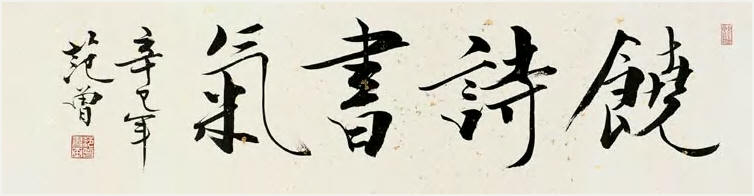 饒詩書氣
辛巳年
范曾